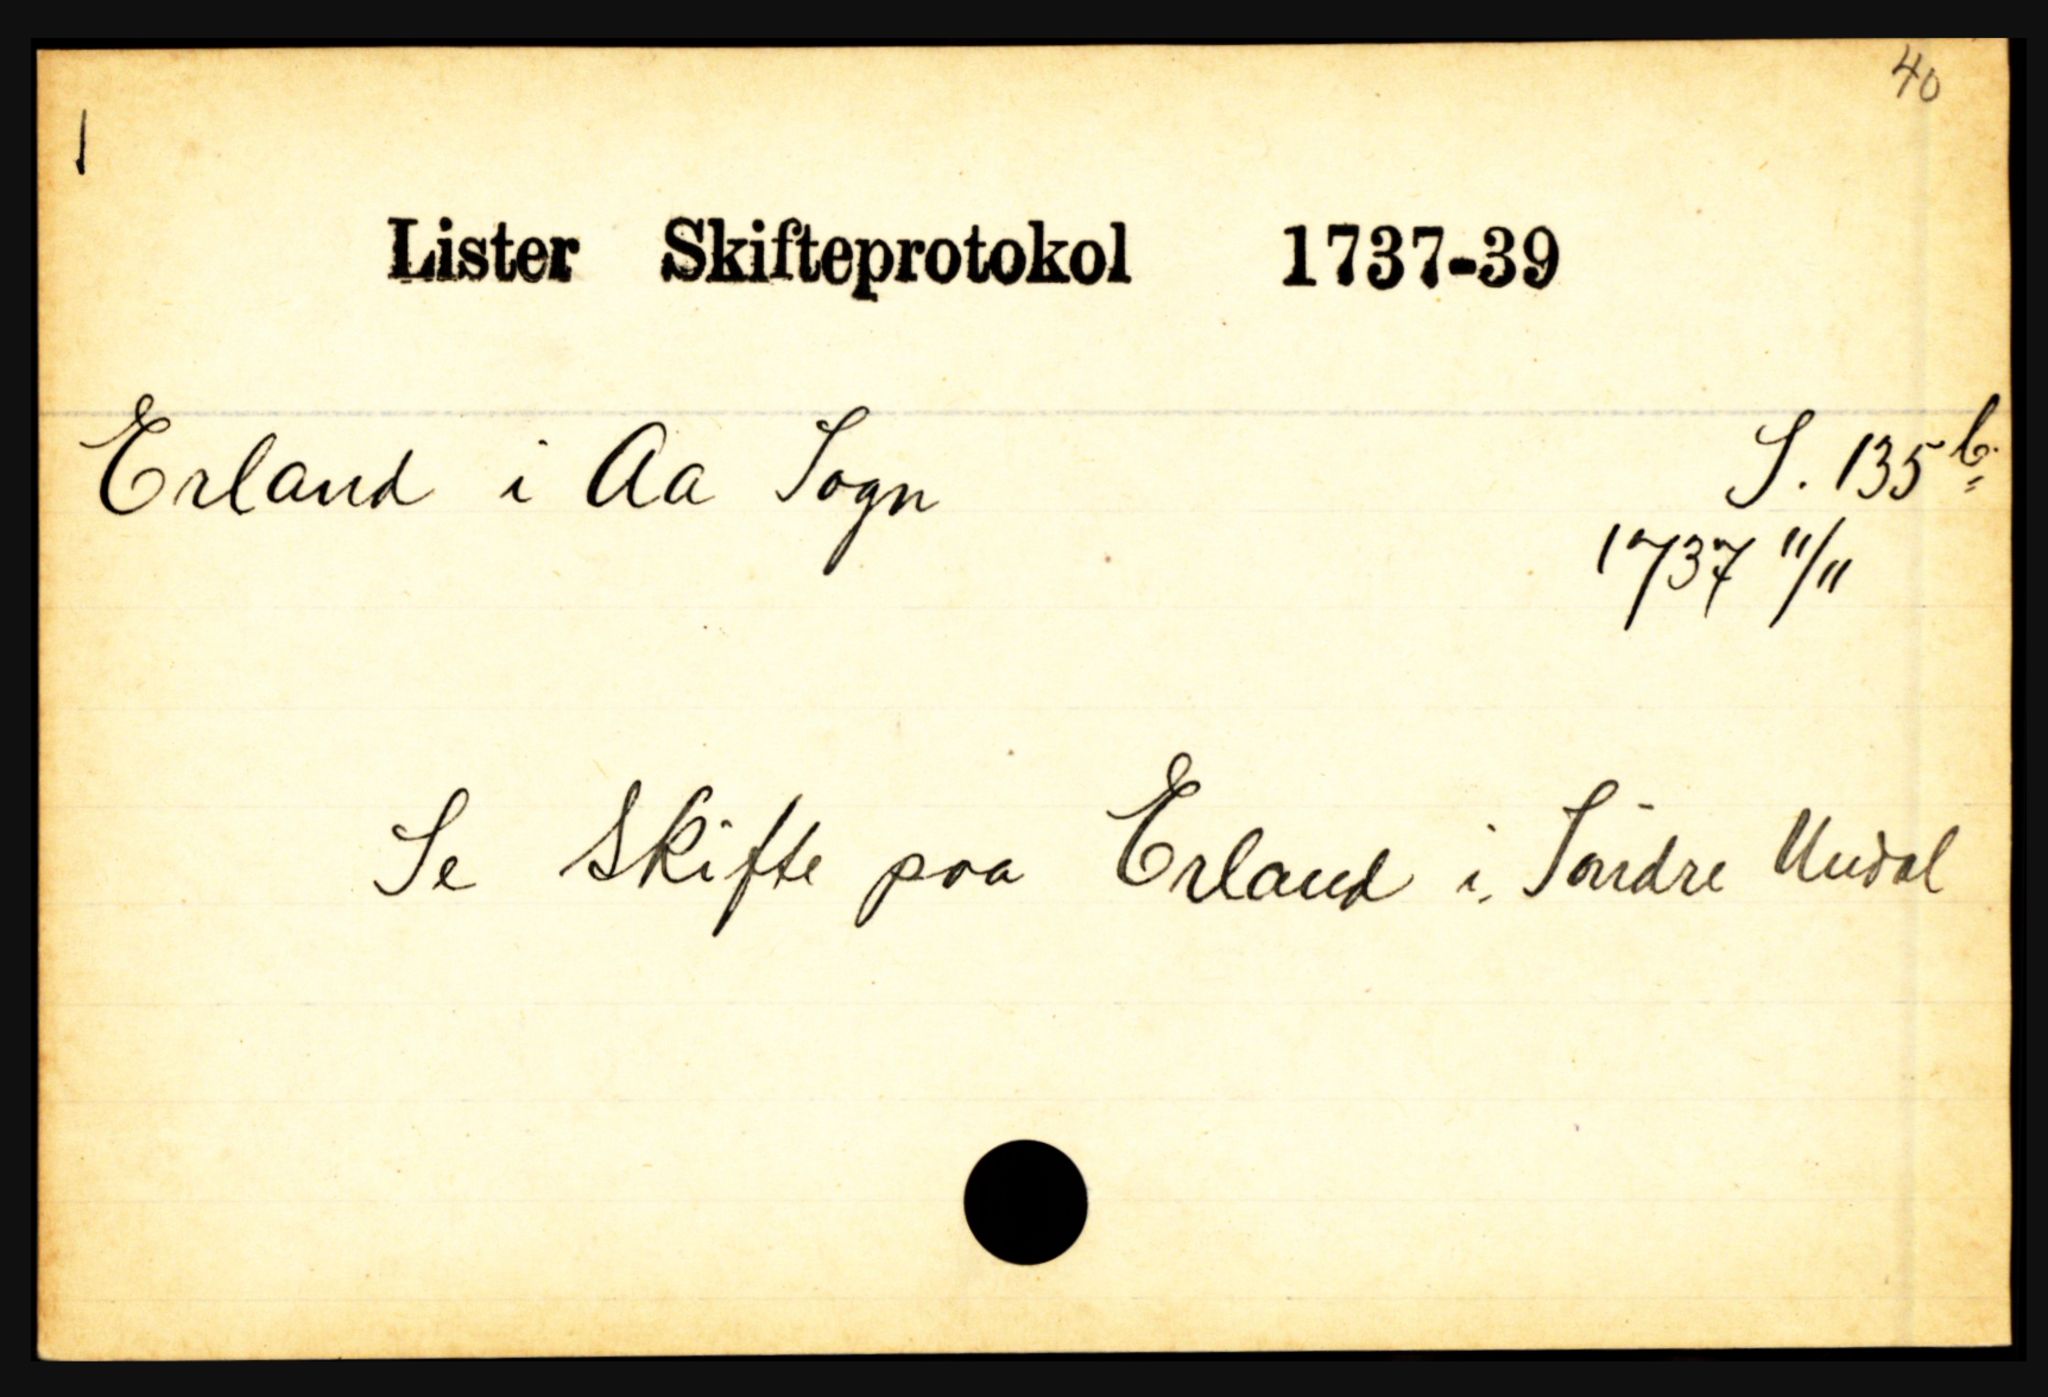 40
1
Lister Skifteprotokol 1737-39
Erland i Aa Sogn S. 135 b.
1737 11/11
Se Skifte paa Erland i Søndre Undal